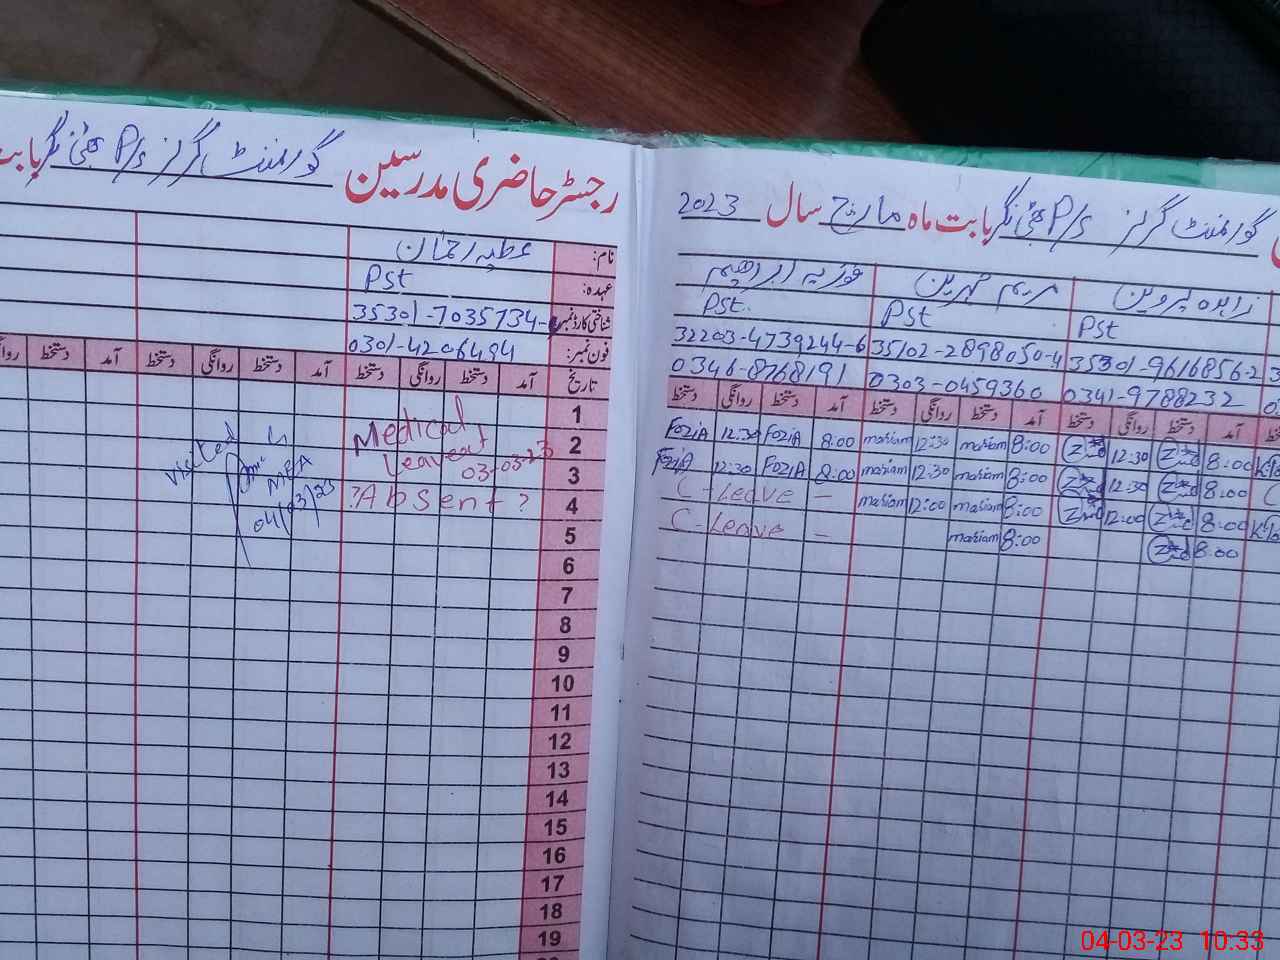 رجسٹر حاضری مدرسین گورنمنٹ گرلز P/S
نام: عطیہ رحمان
عہدہ: Pst
شناختی کارڈ نمبر 35301-7035734-
فون نمبر: 0301-4206494
تاریخ آمد دستخط روانگی دستخط آمد دستخط روانگی دستخط آمد دستخط
1
2 Medical
Leave
3 03-03-23
4 ?Absent?
visited
MEA
04/03/23
5
6
7
8
9
10
11
12
13
14
15
16
17
18
19
گورنمنٹ گرلز P/S بابت ماہ مارچ سال 2023
زاہدہ پروین مریم فوزیہ ابراہیم
Pst Pst Pst.
35301-9616856-2 35102-2898050-4 32203-4739244-6
0341-9788232 0303-0459360 0346-8768191
آمد دستخط روانگی دستخط آمد دستخط روانگی دستخط آمد دستخط روانگی دستخط
FoziA 12:30 FoziA 8:00 mariam 12:30 mariam 8:00 12:30 8:00
FoziA 12:30 FoziA 8:00 mariam 12:30 mariam 8:00 12:30 8:00
C - Leave - mariam 12:00 mariam 8:00 12:00 8:00
C - Leave - mariam 8:00 8:00
04-03-23 10:33